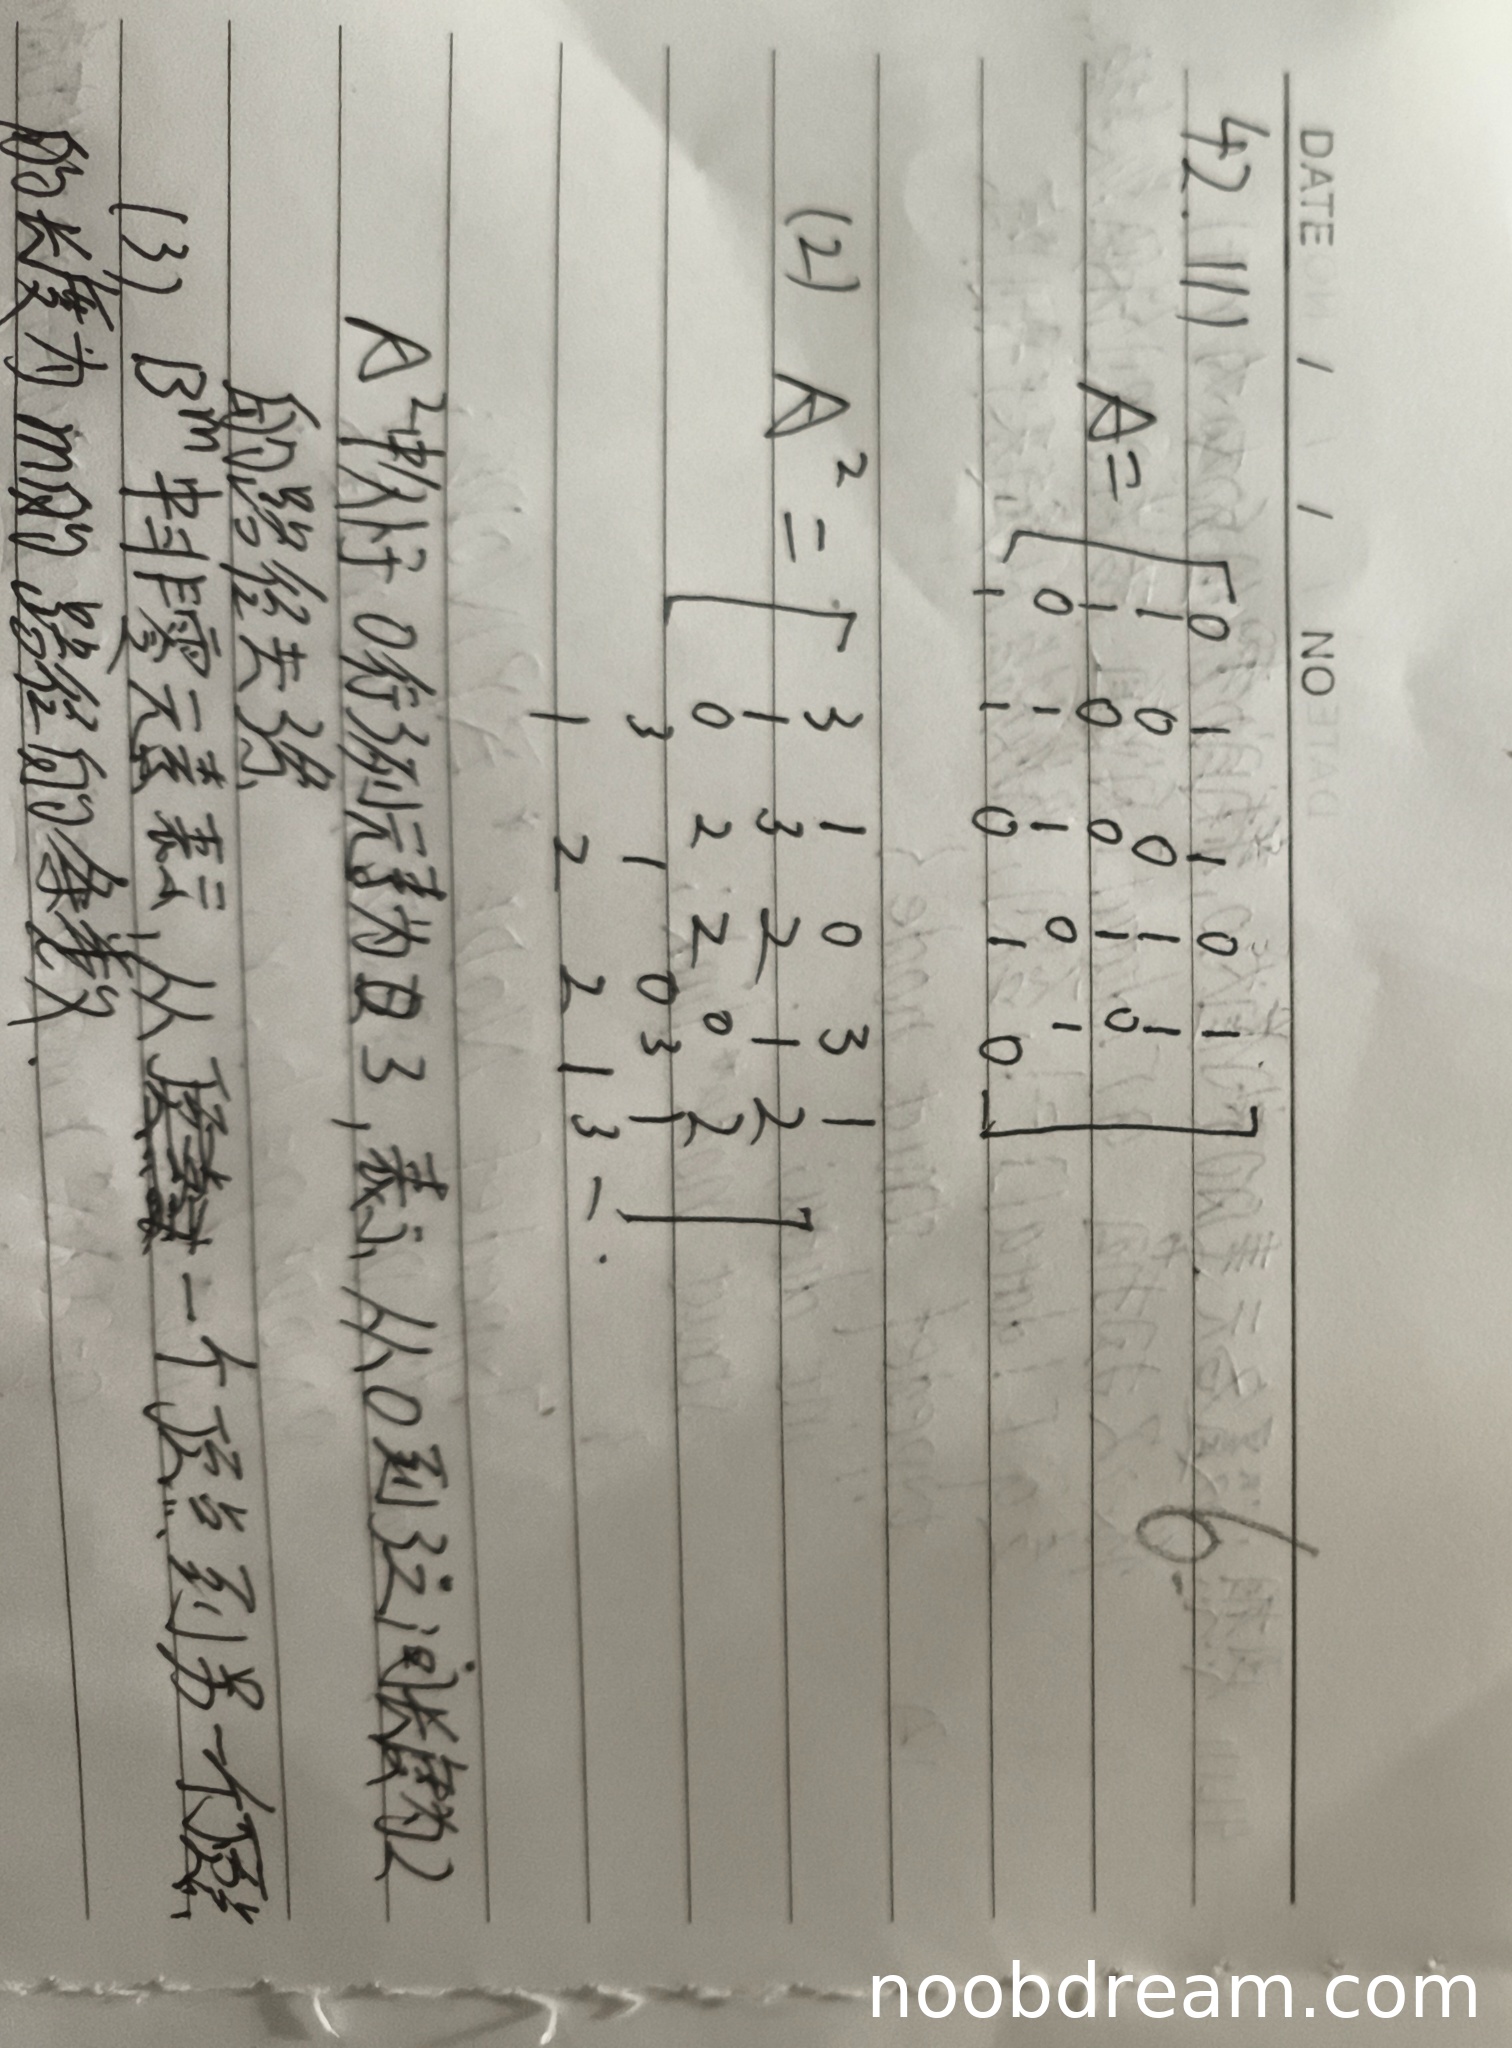 DATE / / NO
42. (1)
6
A =
0 1 1 0 1
1 0 0 1 1
1 0 0 1 0
0 1 1 0 1
1 1 0 1 0
(2) A² =
3 1 0 3 1
1 3 2 1 2
0 2 2 0 2
3 1 0 3 1
1 2 2 1 3
A²中 0行3列元素为 3,表示从0到3之间长度为2
的路径共3条
(3) Bᵐ中非零元素表示,从一个顶点到另一个顶点
的长度为m的路径的条数.
noobdream.com